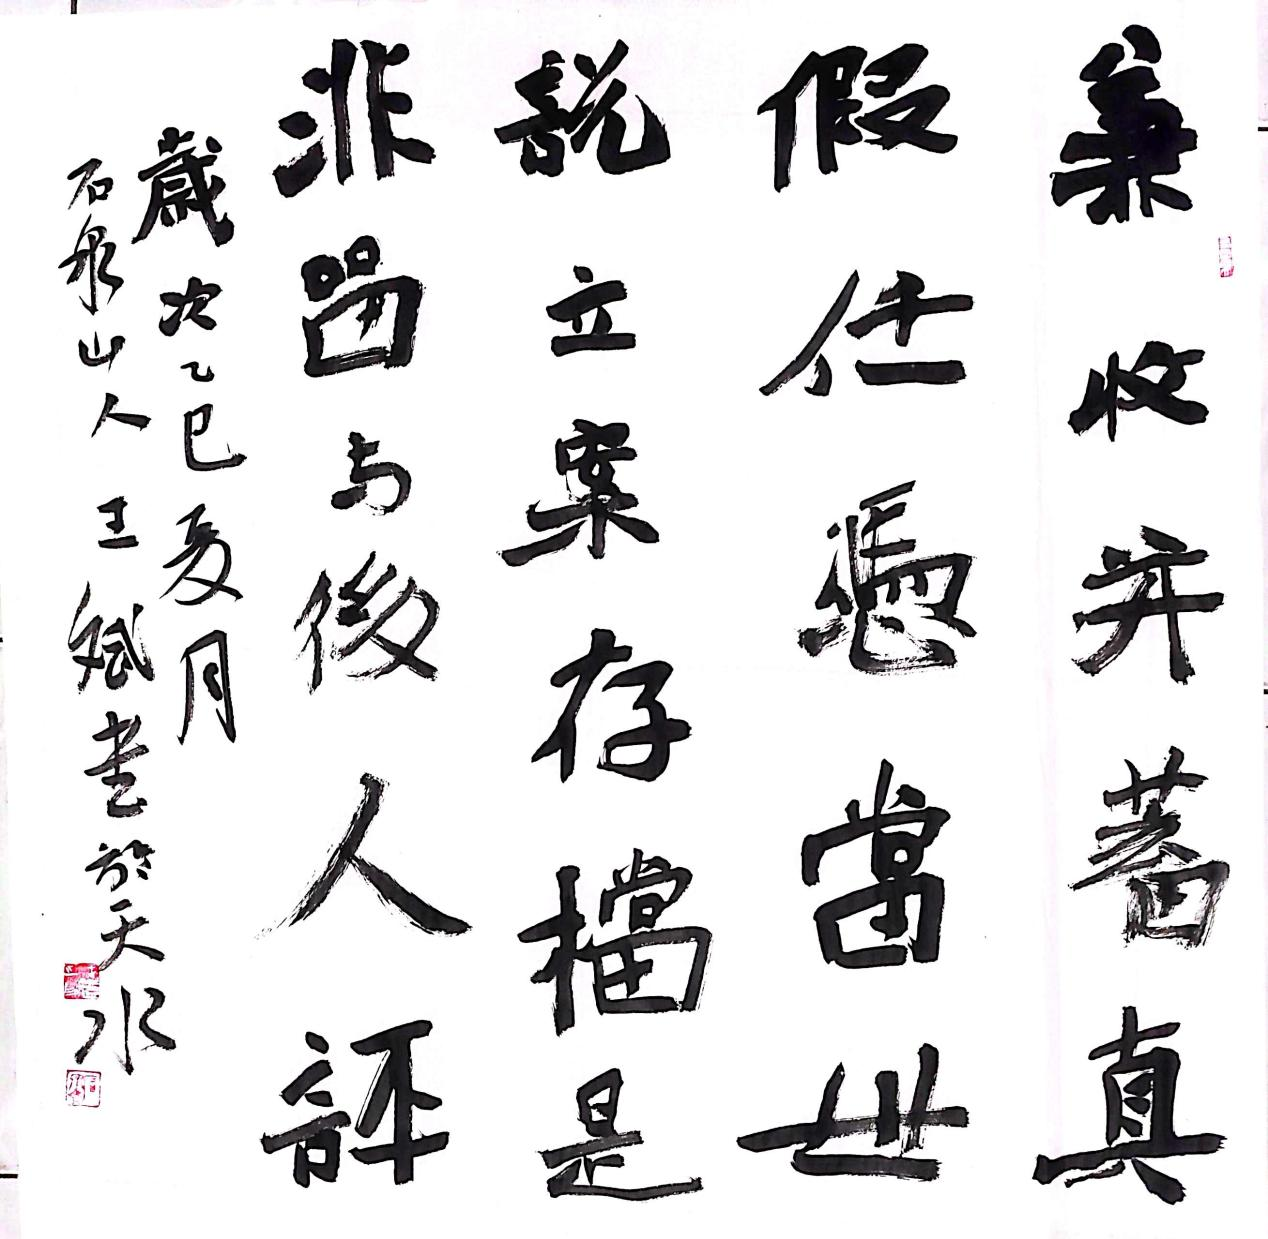 兼收并蓄真
假任憑當世
説立案存檔是
非留与後人評
歲次乙巳夏月
石泉山人王斌書於天水